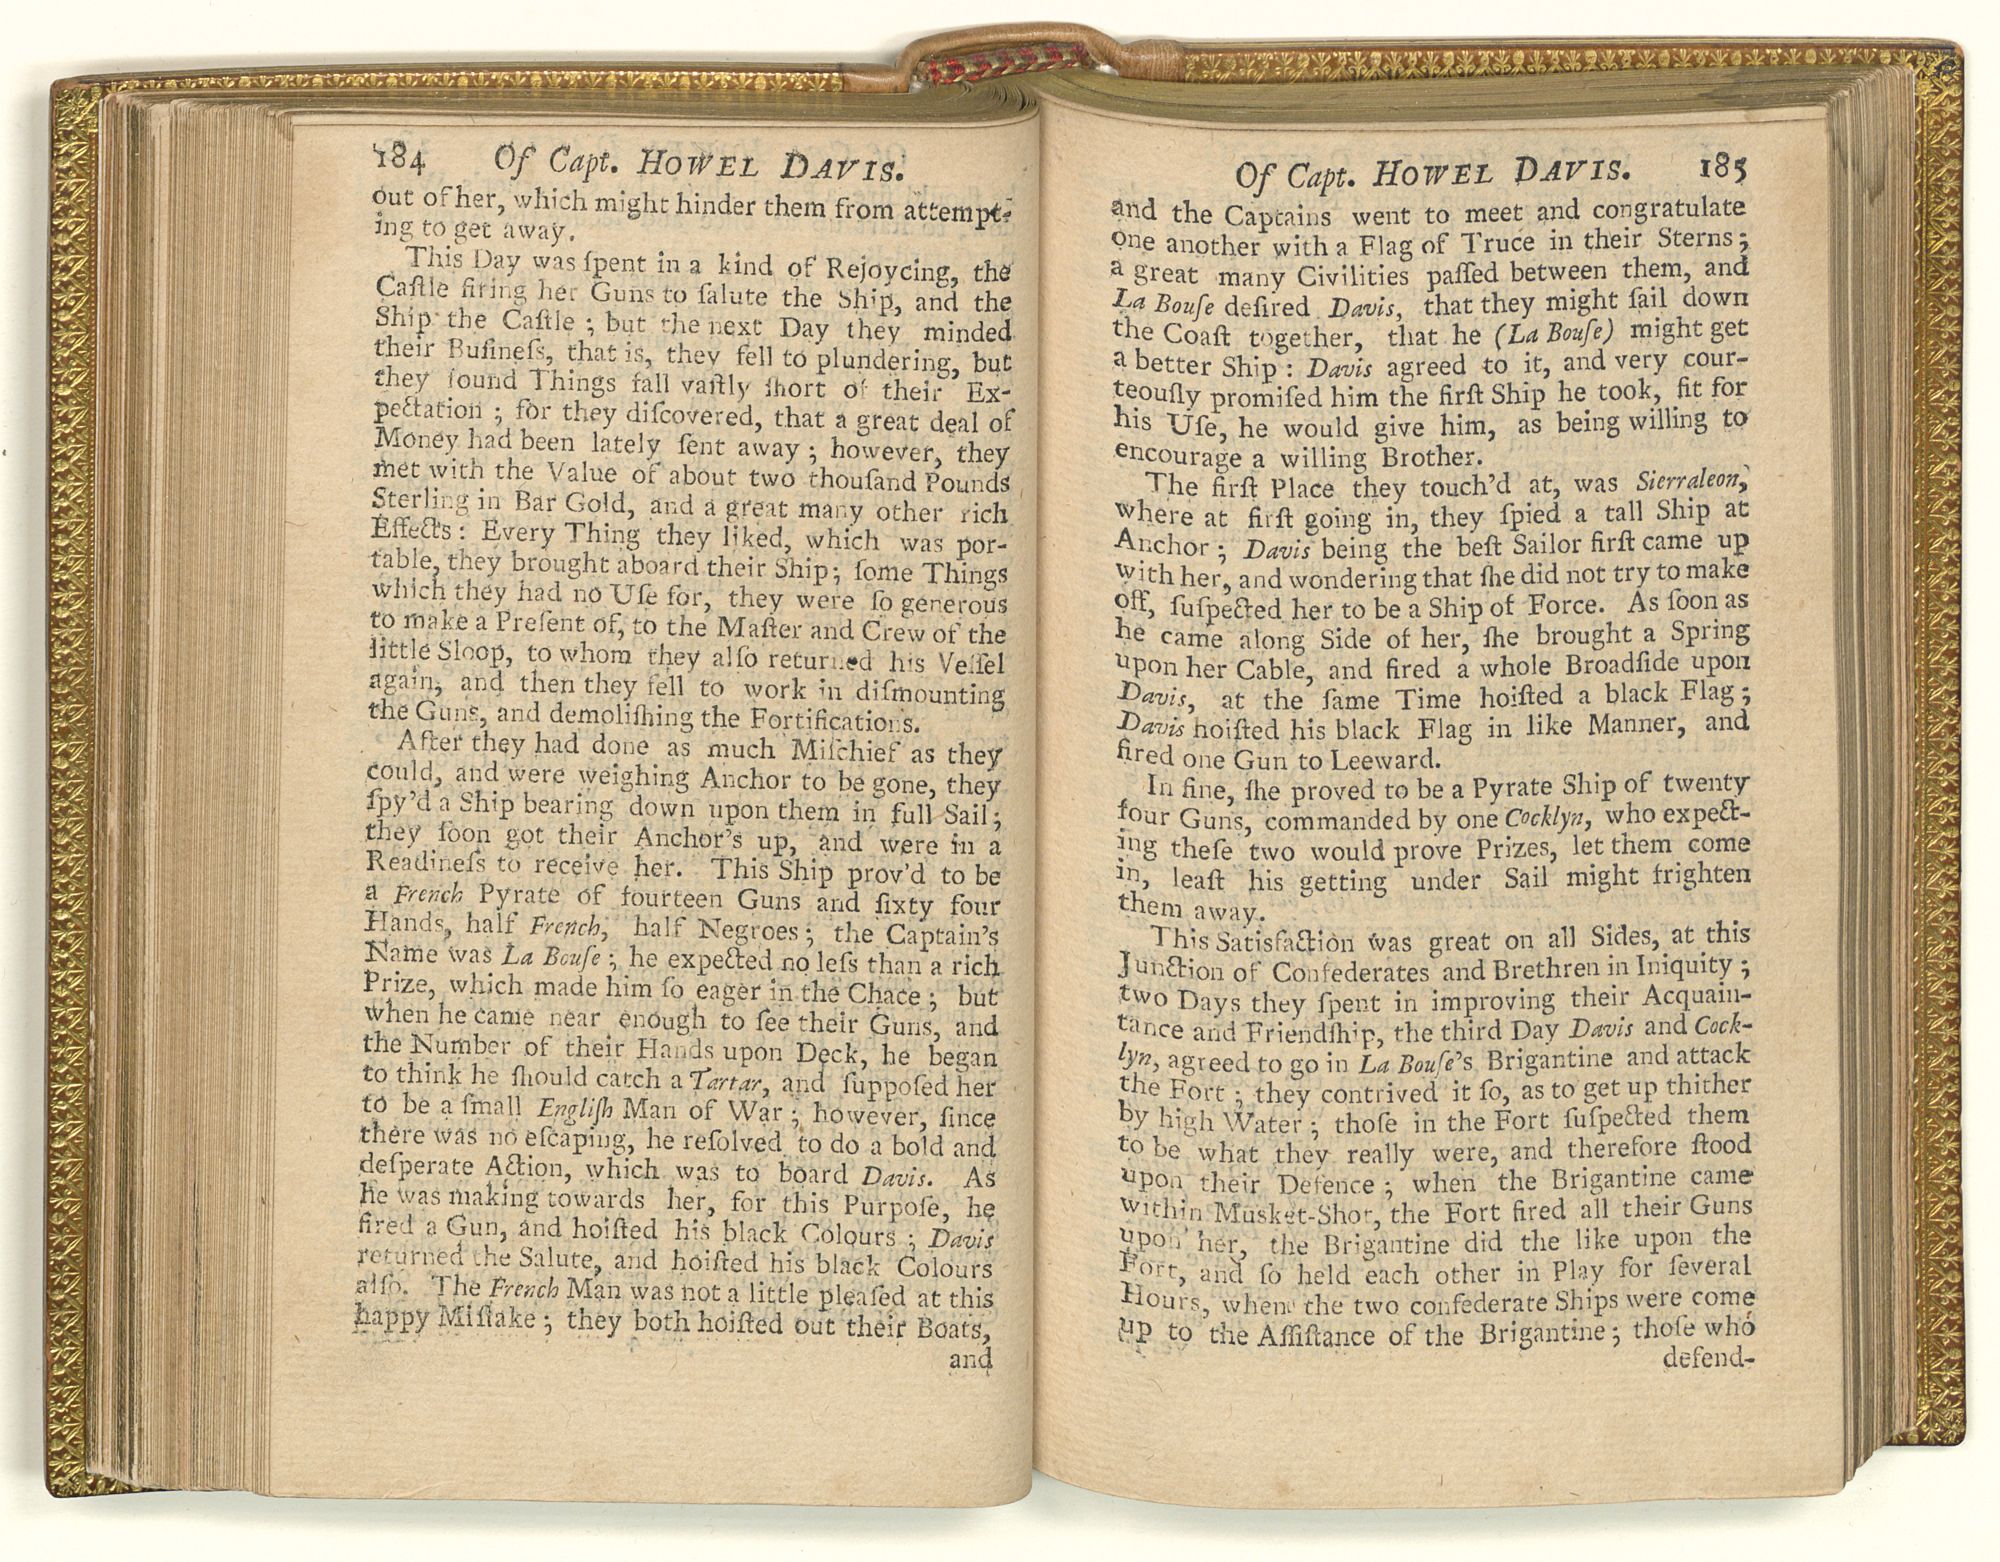 184 Of Capt. HOWEL DAVIS.
out of her, which might hinder them from attempt-
ing to get away.
This Day was ſpent in a kind of Rejoycing, the
Caſtle firing her Guns to ſalute the Ship, and the
Ship the Caſtle ; but the next Day they minded
their Buſineſs, that is, they fell to plundering, but
they found Things fall vaſtly ſhort of their Ex-
pectation ; for they diſcovered, that a great deal of
Money had been lately ſent away ; however, they
met with the Value of about two thouſand Pounds
Sterling in Bar Gold, and a great many other rich
Effects : Every Thing they liked, which was por-
table, they brought aboard their Ship; ſome Things
which they had no Uſe for, they were ſo generous
to make a Preſent of, to the Maſter and Crew of the
little Sloop, to whom they alſo returned his Veſſel
again, and then they fell to work in diſmounting
the Guns, and demoliſhing the Fortifications.
After they had done as much Miſchief as they
could, and were weighing Anchor to be gone, they
ſpy'd a Ship bearing down upon them in full Sail ;
they ſoon got their Anchor's up, and were in a
Readineſs to receive her. This Ship prov'd to be
a French Pyrate of fourteen Guns and ſixty four
Hands, half French, half Negroes ; the Captain's
Name was La Bouſe ; he expected no leſs than a rich
Prize, which made him ſo eager in the Chace ; but
when he came near enough to ſee their Guns, and
the Number of their Hands upon Deck, he began
to think he ſhould catch a Tartar, and ſuppoſed her
to be a ſmall Engliſh Man of War ; however, ſince
there was no eſcaping, he reſolved to do a bold and
deſperate Action, which was to board Davis. As
he was making towards her, for this Purpoſe, he
fired a Gun, and hoiſted his black Colours ; Davis
returned the Salute, and hoiſted his black Colours
alſo. The French Man was not a little pleaſed at this
happy Miſtake ; they both hoiſted out their Boats,
and
Of Capt. HOWEL DAVIS. 185
and the Captains went to meet and congratulate
one another with a Flag of Truce in their Sterns ;
a great many Civilities paſſed between them, and
La Bouſe deſired Davis, that they might ſail down
the Coaſt together, that he (La Bouſe) might get
a better Ship : Davis agreed to it, and very cour-
teouſly promiſed him the firſt Ship he took, fit for
his Uſe, he would give him, as being willing to
encourage a willing Brother.
The firſt Place they touch'd at, was Sierraleon,
where at firſt going in, they ſpied a tall Ship at
Anchor ; Davis being the beſt Sailor firſt came up
with her, and wondering that ſhe did not try to make
off, ſuſpected her to be a Ship of Force. As ſoon as
he came along Side of her, ſhe brought a Spring
upon her Cable, and fired a whole Broadſide upon
Davis, at the ſame Time hoiſted a black Flag ;
Davis hoiſted his black Flag in like Manner, and
fired one Gun to Leeward.
In fine, ſhe proved to be a Pyrate Ship of twenty
four Guns, commanded by one Cocklyn, who expect-
ing theſe two would prove Prizes, let them come
in, leaſt his getting under Sail might frighten
them away.
This Satisfaction was great on all Sides, at this
Junction of Confederates and Brethren in Iniquity ;
two Days they ſpent in improving their Acquain-
tance and Friendſhip, the third Day Davis and Cock-
lyn, agreed to go in La Bouſe's Brigantine and attack
the Fort ; they contrived it ſo, as to get up thither
by high Water ; thoſe in the Fort ſuſpected them
to be what they really were, and therefore ſtood
upon their Defence ; when the Brigantine came
within Musket-Shot, the Fort fired all their Guns
upon her, the Brigantine did the like upon the
Fort, and ſo held each other in Play for ſeveral
Hours, when the two confederate Ships were come
up to the Aſſiſtance of the Brigantine ; thoſe who
defend-